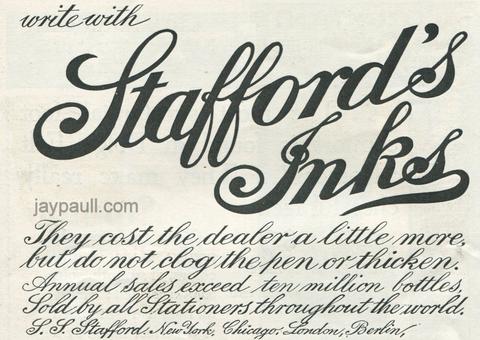 write with
Stafford's
Inks
jaypaull.com
They cost the dealer a little more,
but do not clog the pen or thicken.
Annual sales exceed ten million bottles.
Sold by all Stationers throughout the world.
S. S. Stafford. New York, Chicago, London, Berlin,